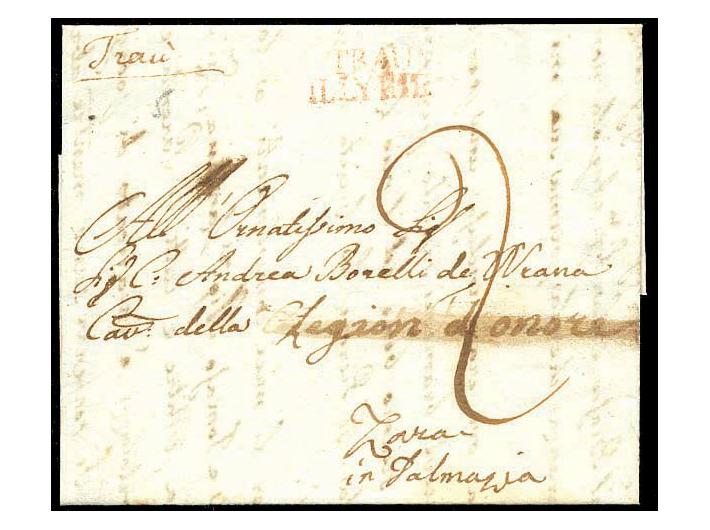 Traù
TRAU
ILLYRIE
All' Ornatissimo Sig
Sig C. Andrea Borelli de Wrana
Cav.r della Legion d'onore
2
Zara
in Dalmazia